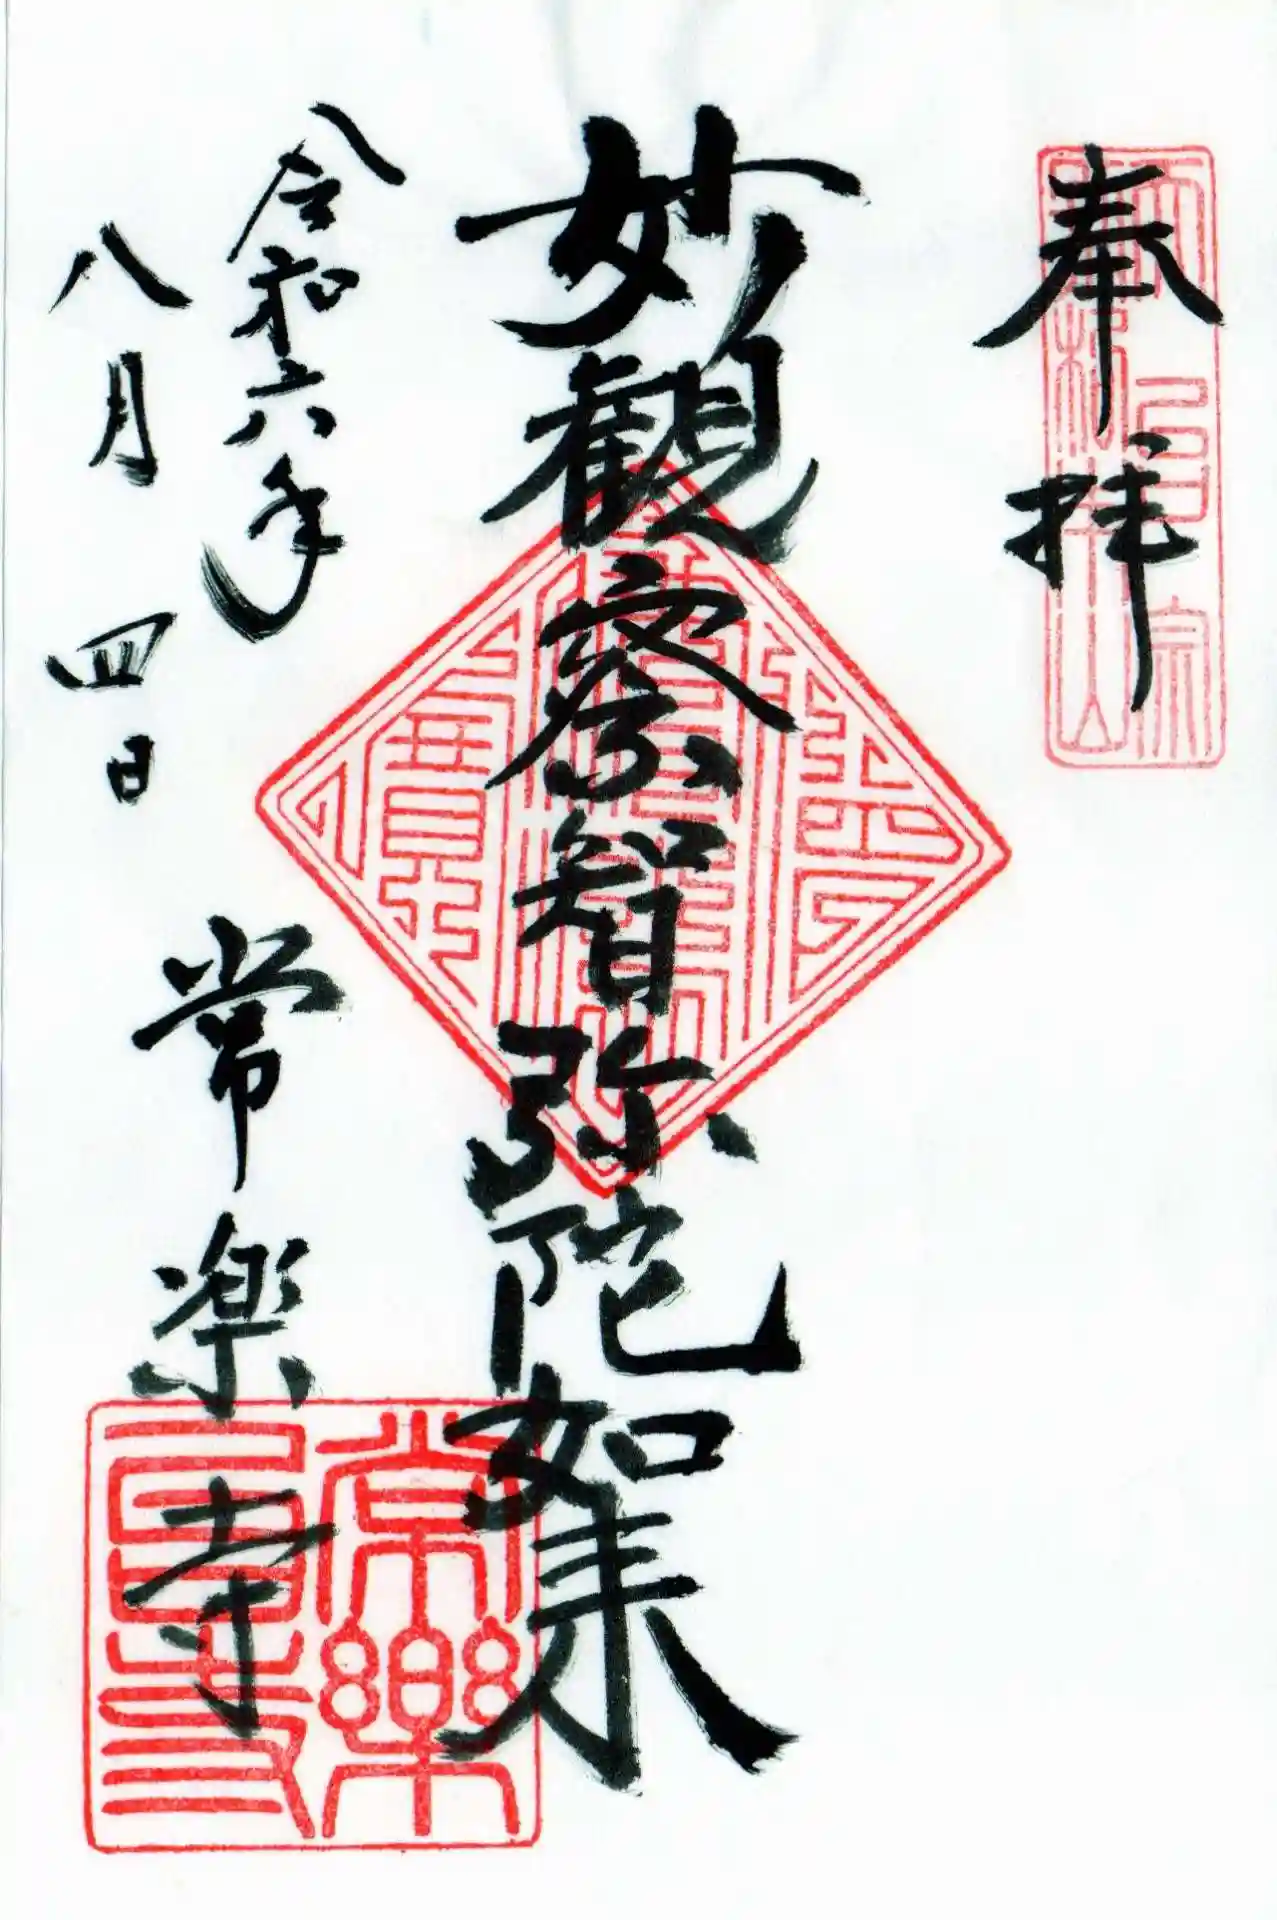 奉拝
妙観察智弥陀如来
令和六年
八月四日
常楽寺